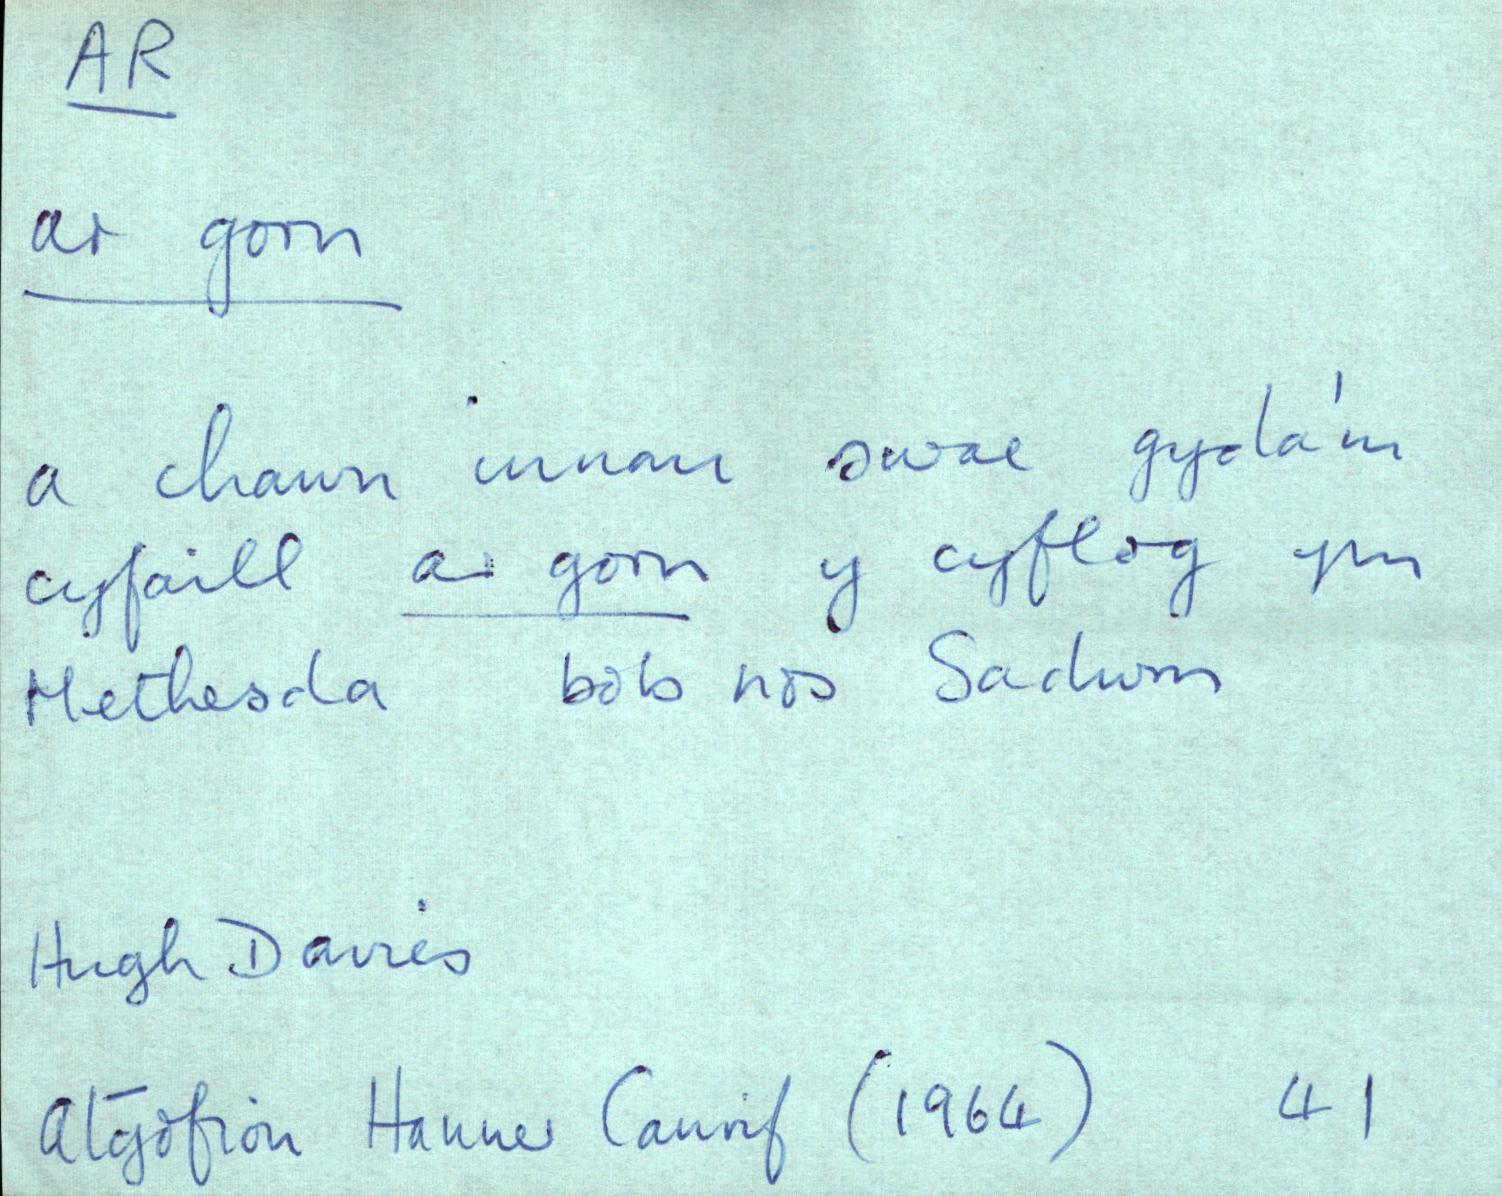 AR
ar gorn
a chawn innau swae gyda'm
cyfaill ar gorn y cyflog ym
Methesda bob nos Sadwrn
Hugh Davies
Atgofion Hanner Canrif (1964) 41